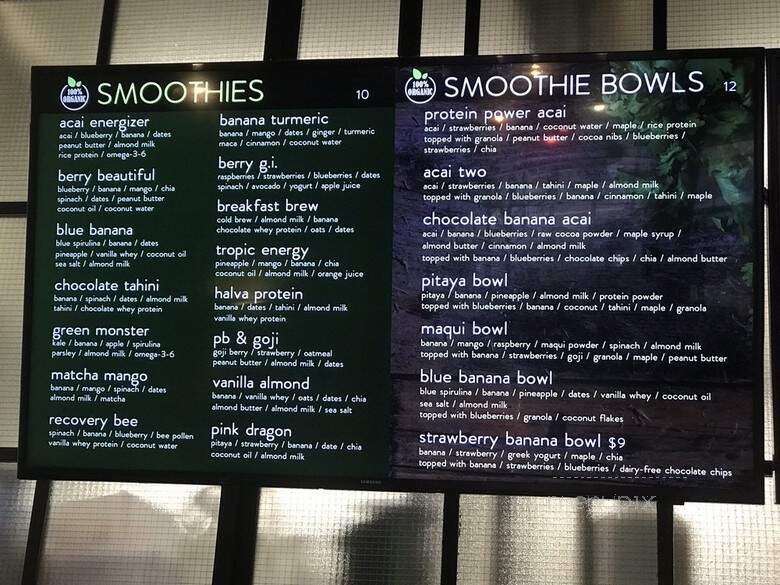 100%
ORGANIC
SMOOTHIES 10
acai energizer
acai / blueberry / banana / dates
peanut butter / almond milk
rice protein / omega-3-6
berry beautiful
blueberry / banana / mango / chia
spinach / dates / peanut butter
coconut oil / coconut water
blue banana
blue spirulina / banana / dates
pineapple / vanilla whey / coconut oil
sea salt / almond milk
chocolate tahini
banana / spinach / dates / almond milk
tahini / chocolate whey protein
green monster
kale / banana / apple / spirulina
parsley / almond milk / omega-3-6
matcha mango
banana / mango / spinach / dates
almond milk / matcha
recovery bee
spinach / banana / blueberry / bee pollen
vanilla whey protein / coconut water
banana turmeric
banana / mango / dates / ginger / turmeric
maca / cinnamon / coconut water
berry g.i.
raspberries / strawberries / blueberries / dates
spinach / avocado / yogurt / apple juice
breakfast brew
cold brew / almond milk / banana
chocolate whey protein / oats / dates
tropic energy
pineapple / mango / banana / chia
coconut oil / almond milk / orange juice
halva protein
banana / dates / tahini / almond milk
vanilla whey protein
pb & goji
goji berry / strawberry / oatmeal
peanut butter / almond milk / dates
vanilla almond
banana / vanilla whey / oats / dates / chia
almond butter / almond milk / sea salt
pink dragon
pitaya / strawberry / banana / date / chia
coconut oil / almond milk
100%
ORGANIC
SMOOTHIE BOWLS 12
protein power acai
acai / strawberries / banana / coconut water / maple / rice protein
topped with granola / peanut butter / cocoa nibs / blueberries /
strawberries / chia
acai two
acai / strawberries / banana / tahini / maple / almond milk
topped with granola / blueberries / banana / cinnamon / tahini / maple
chocolate banana acai
acai / banana / blueberries / raw cocoa powder / maple syrup /
almond butter / cinnamon / almond milk
topped with banana / blueberries / chocolate chips / chia / almond butter
pitaya bowl
pitaya / banana / pineapple / almond milk / protein powder
topped with blueberries / banana / coconut / tahini / maple / granola
maqui bowl
banana / mango / raspberry / maqui powder / spinach / almond milk
topped with banana / strawberries / goji / granola / maple / peanut butter
blue banana bowl
blue spirulina / banana / pineapple / dates / vanilla whey / coconut oil
sea salt / almond milk
topped with blueberries / granola / coconut flakes
strawberry banana bowl $9
banana / strawberry / greek yogurt / maple / chia
topped with banana / strawberries / blueberries / dairy-free chocolate chips
SAMSUNG